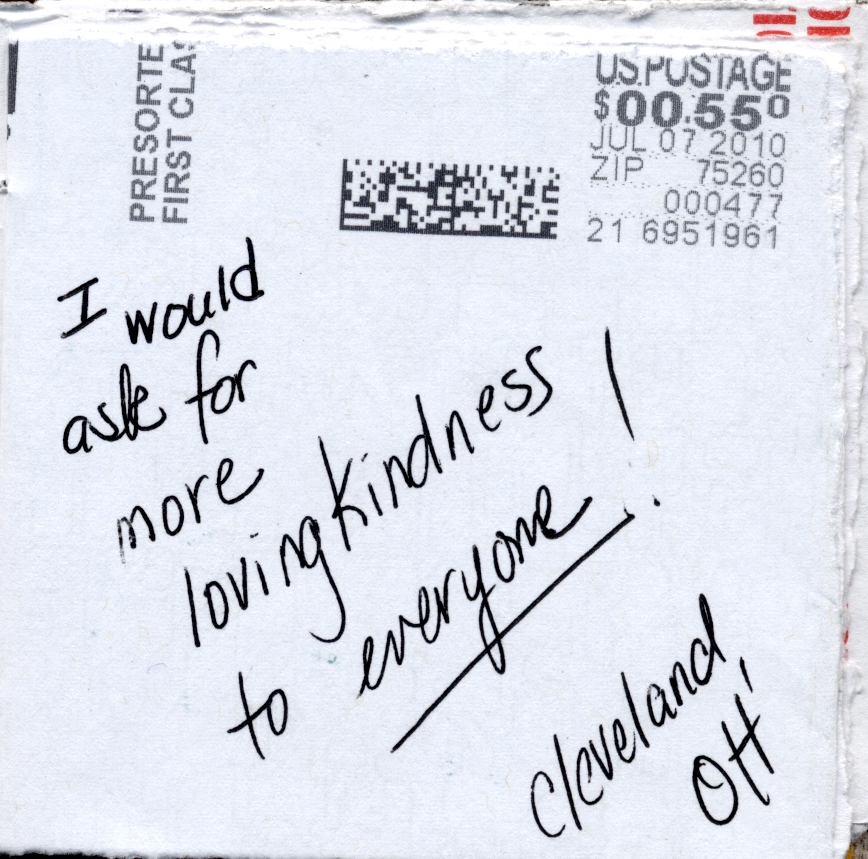 PRESORTE
FIRST CLAS
U.S. POSTAGE
$00.55⁰
JUL 07 2010
ZIP 75260
000477
21 6951961
I would
ask for
more
lovingkindness
to everyone!
Cleveland,
OH